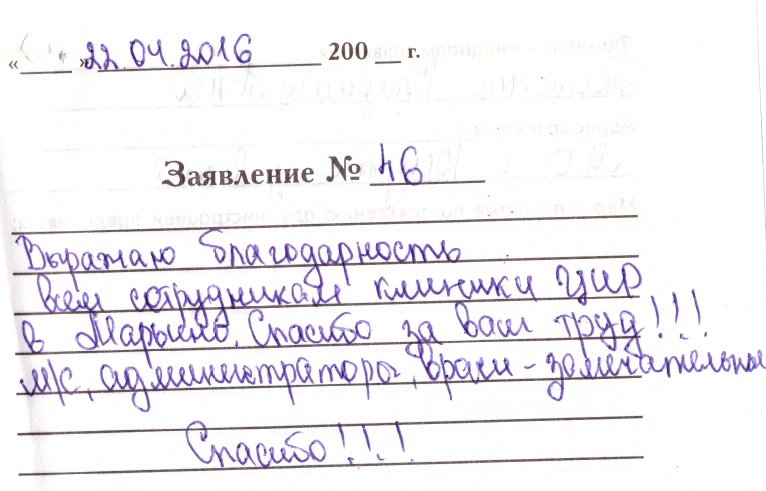 « » 22.04.2016 200 г.
Заявление № 46
Выражаю благодарность
всем сотрудникам клиники ЦИР
в Марьино. Спасибо за ваш труд!!!
м/с, администраторы, врачи - замечательные
Спасибо!!!